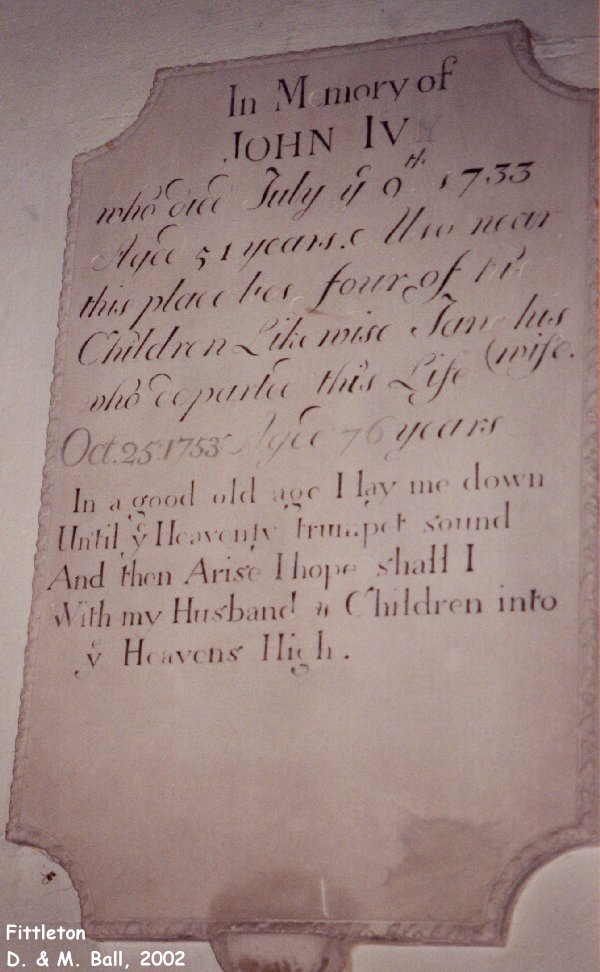 In Memory of
JOHN IVY
who died July yͤ 9ᵗʰ 1733
Aged 51 years. Also near
this place lies four of his
Children Likewise Jane his
who departed this Life (wife.
Oct. 25. 1753 Aged 76 years
In a good old age I lay me down
Until yͤ Heavenly trumpet sound
And then Arise I hope shall I
With my Husband & Children into
yͤ Heavens High.
Fittleton
D. & M. Ball, 2002